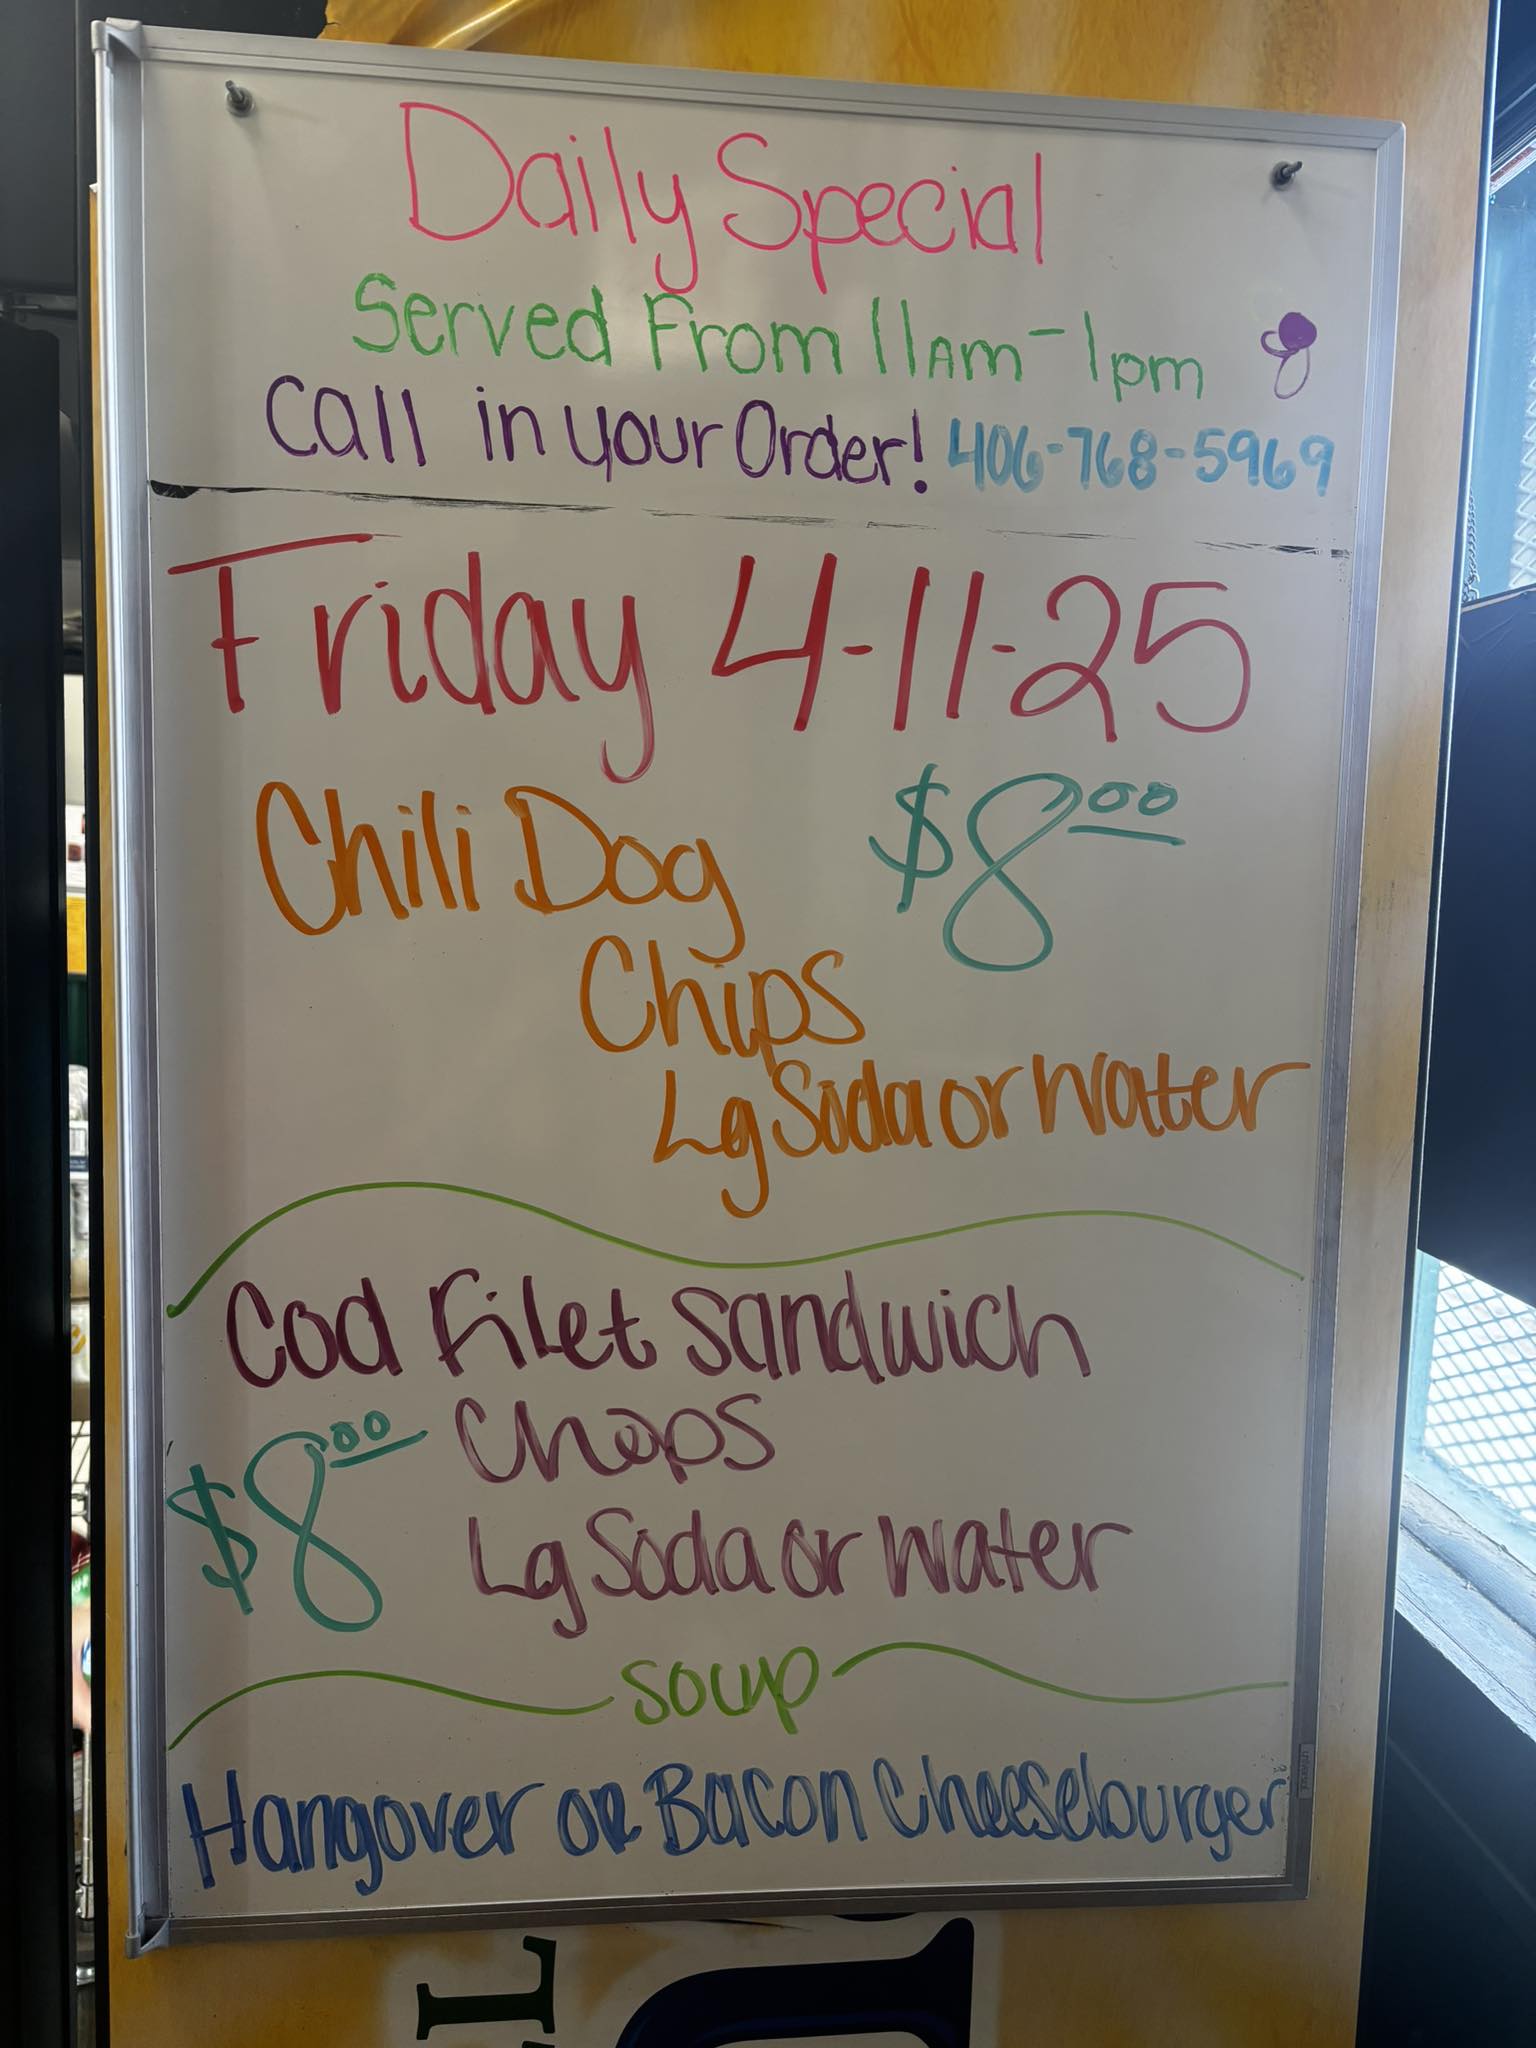 Daily Special
Served From 11am-1pm
Call in your Order! 406-768-5969
Friday 4-11-25
Chili Dog $8.00
Chips
Lg Soda or Water
Cod Filet Sandwich
$8.00 Chips
Lg Soda or Water
Soup
Hangover or Bacon Cheeseburger